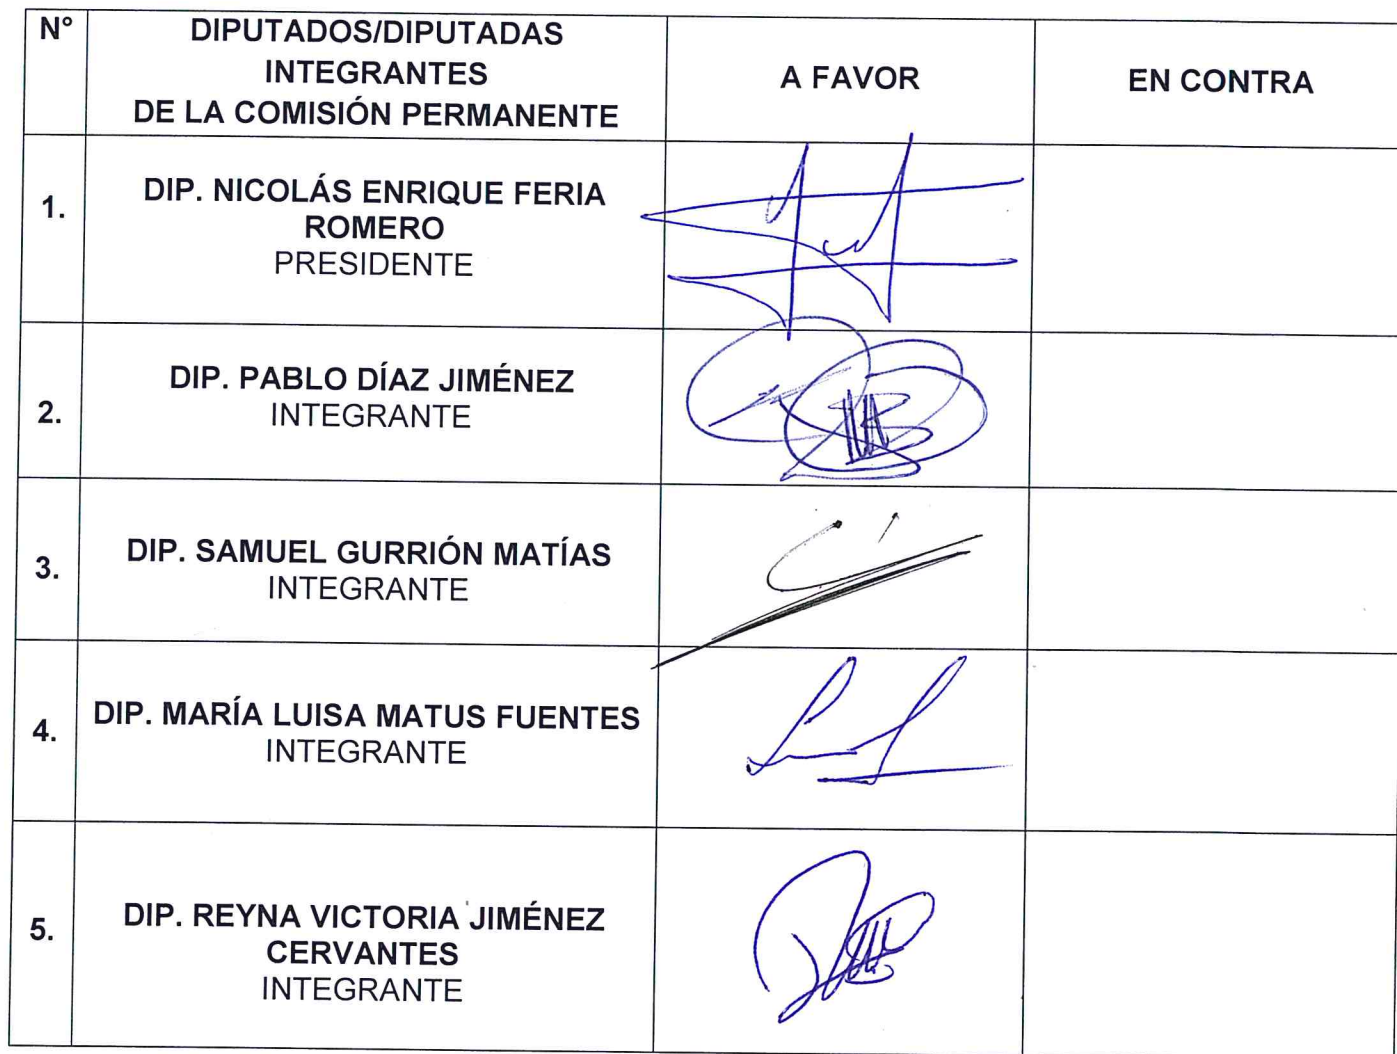 N°
DIPUTADOS/DIPUTADAS
INTEGRANTES
DE LA COMISIÓN PERMANENTE
A FAVOR
EN CONTRA
1.
DIP. NICOLÁS ENRIQUE FERIA
ROMERO
PRESIDENTE
2.
DIP. PABLO DÍAZ JIMÉNEZ
INTEGRANTE
3.
DIP. SAMUEL GURRIÓN MATÍAS
INTEGRANTE
4.
DIP. MARÍA LUISA MATUS FUENTES
INTEGRANTE
5.
DIP. REYNA VICTORIA JIMÉNEZ
CERVANTES
INTEGRANTE